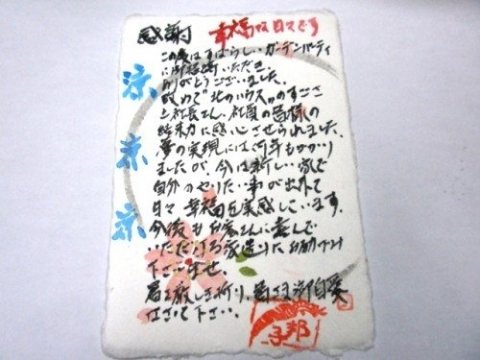 感謝 幸福な日々です
この度はすばらしいガーデンパーティ
に御招待いただき、
ありがとうございました。
改めて"北のハウス"のすごさ
と社長さん、社員の皆様の
結束力に感心させられました。
夢の実現には何年もかかり
ましたが、今は新しい家で
自分のやりたい事が出来て
日々幸福を実感しています。
今後もお客さんに喜んで
いただける家造りにお励み
下さいませ。
厳しき折り、皆さま御自愛
なさって下さい。